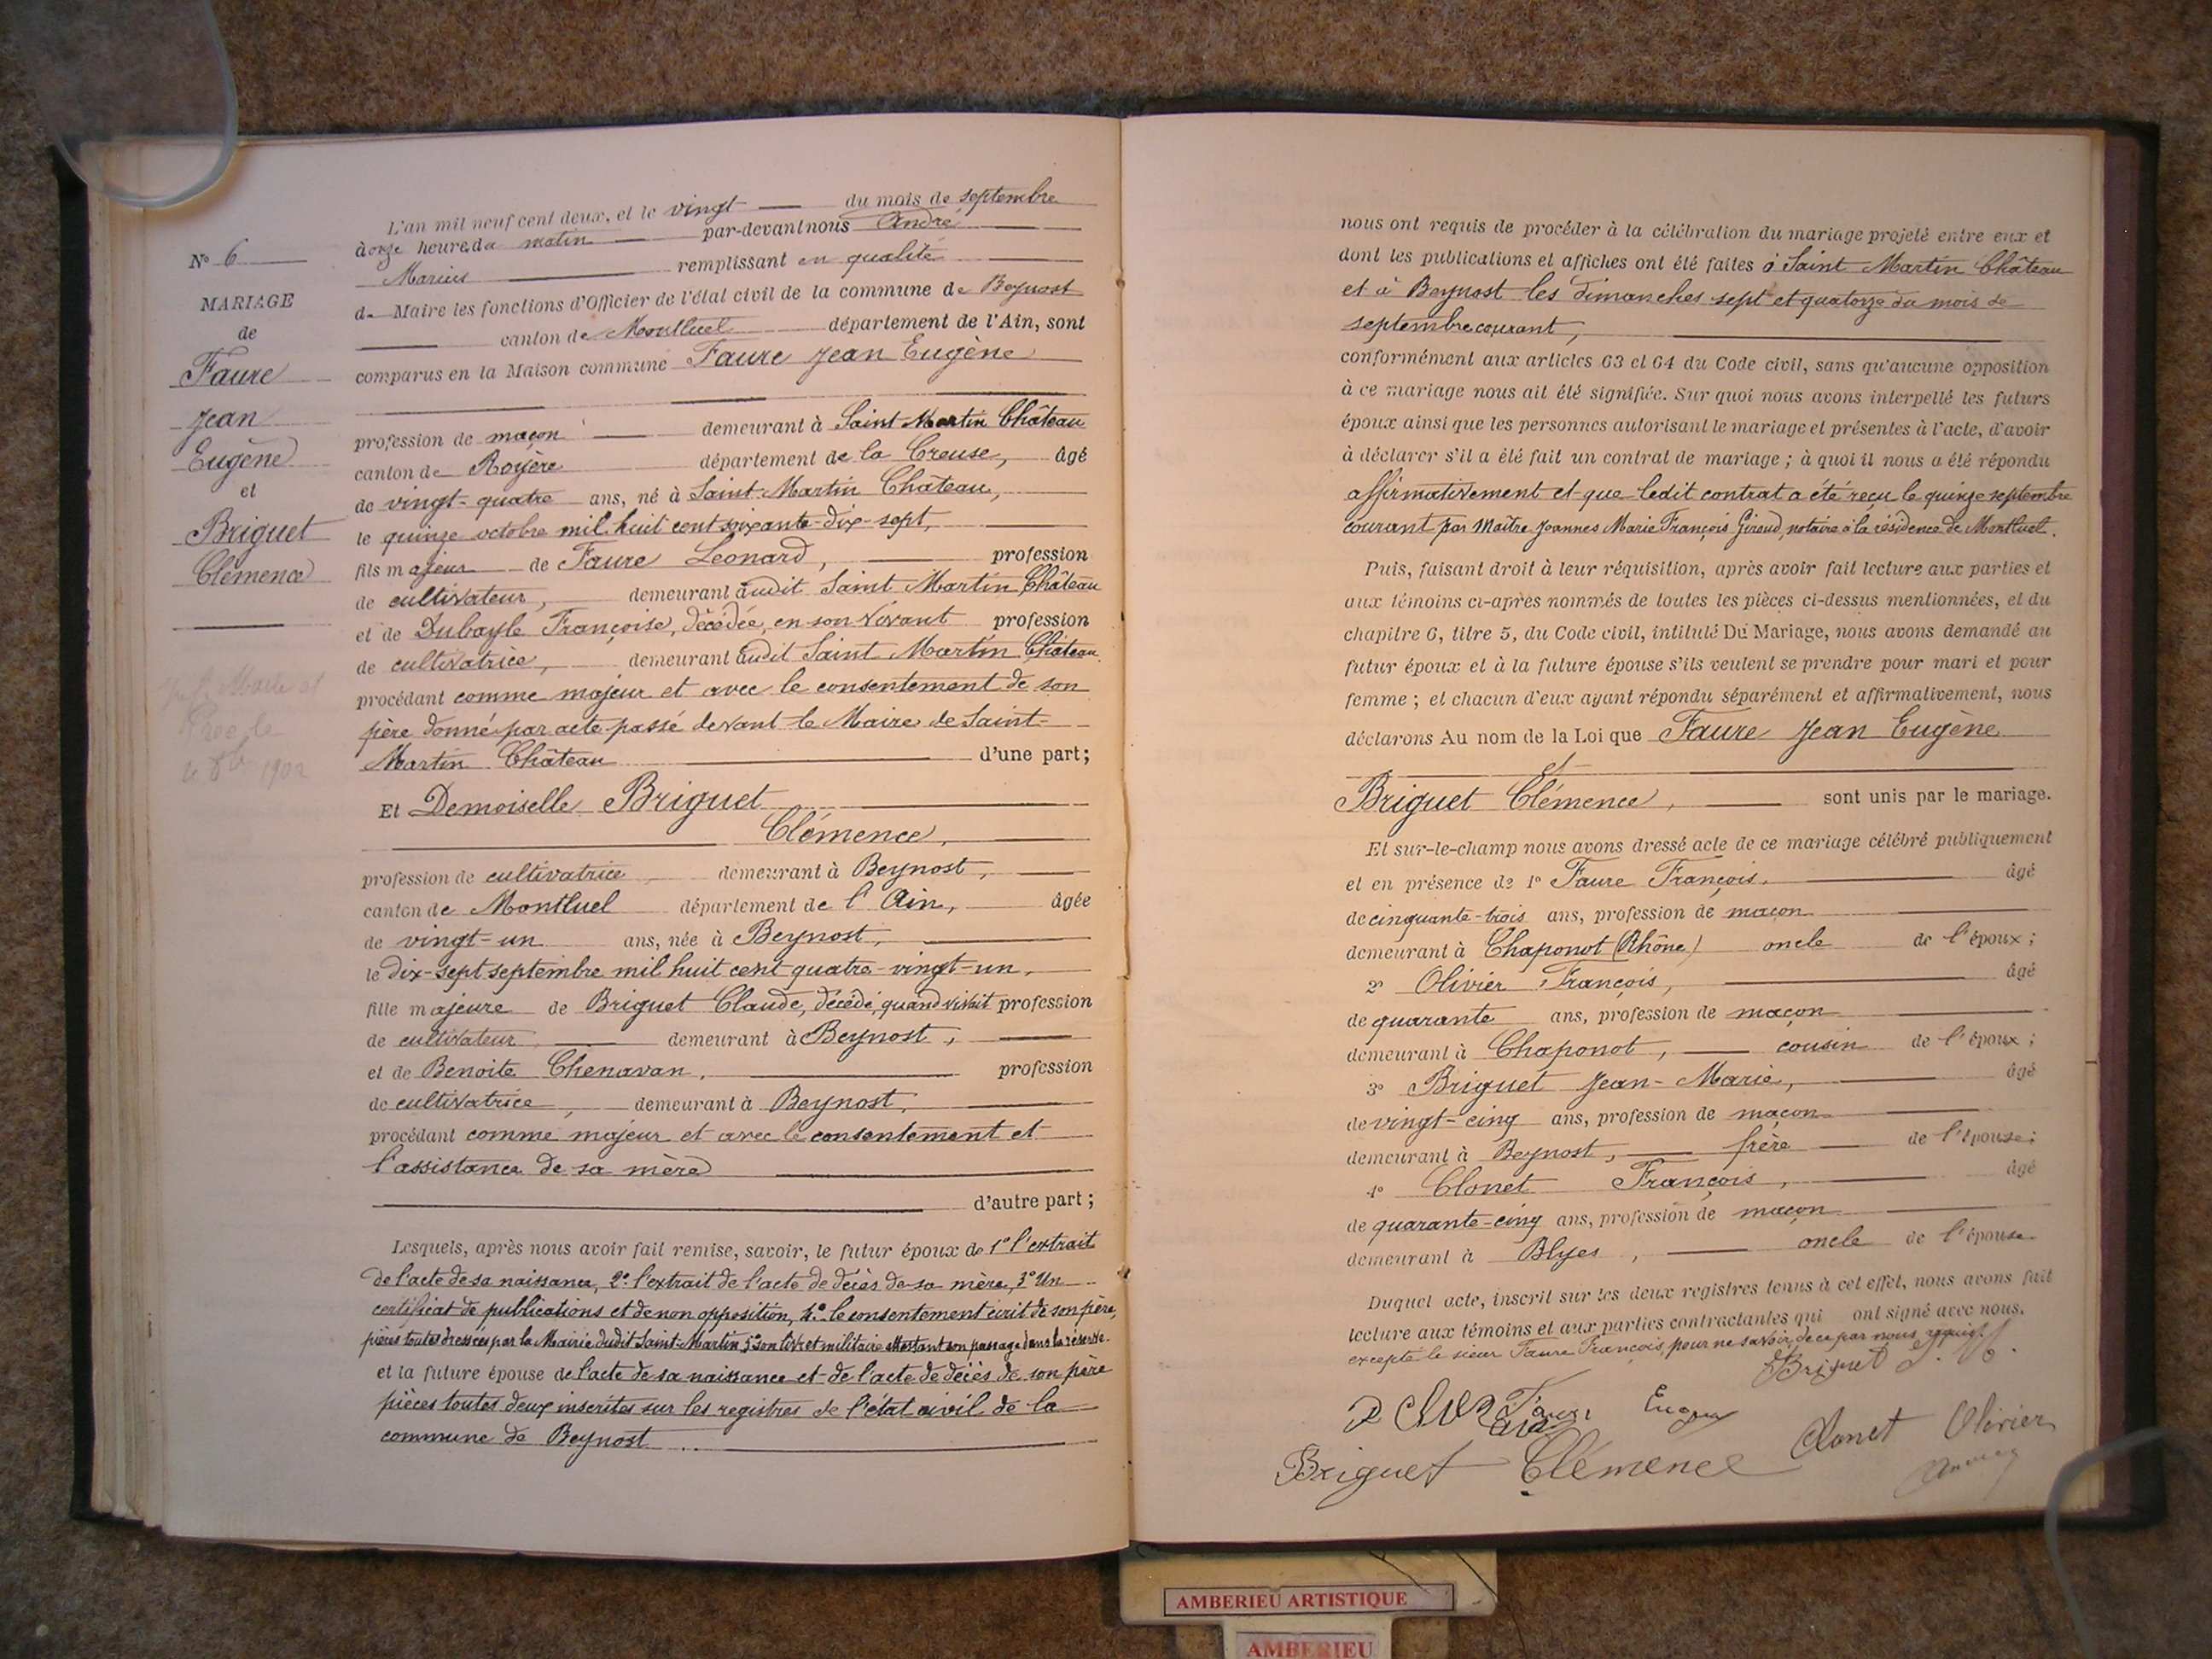 N° 6
MARIAGE
de
Faure
Jean
Eugène
et
Briguet
Clémence
1902
L'an mil neuf cent deux, et le vingt du mois de septembre
à onze heures du matin par-devant nous André
Marius remplissant en qualité
de Maire les fonctions d'Officier de l'état civil de la commune de Beynost
canton de Montluel département de l'Ain, sont
comparus en la Maison commune Faure Jean Eugène
profession de maçon demeurant à Saint Martin Château
canton de Royère département de la Creuse, âgé
de vingt-quatre ans, né à Saint-Martin Château,
le quinze octobre mil huit cent soixante-dix-sept,
fils majeur de Faure Léonard, profession
de cultivateur, demeurant audit Saint Martin Château
et de Dubayle Françoise, décédée, en son vivant profession
de cultivatrice, demeurant audit Saint Martin Château
procédant comme majeur et avec le consentement de son
père donné par acte passé devant le Maire de Saint-
Martin Château d'une part;
Et Demoiselle Briguet
Clémence,
profession de cultivatrice demeurant à Beynost,
canton de Montluel département de l'Ain, âgée
de vingt-un ans, née à Beynost,
le dix-sept septembre mil huit cent quatre-vingt-un,
fille majeure de Briguet Claude, décédé, quand vivait profession
de cultivateur demeurant à Beynost,
et de Benoite Chenavan, profession
de cultivatrice, demeurant à Beynost,
procédant comme majeur et avec le consentement et
l'assistance de sa mère
d'autre part;
Lesquels, après nous avoir fait remise, savoir, le futur époux de 1° l'extrait
de l'acte de sa naissance, 2° l'extrait de l'acte de décès de sa mère, 3° Un
certificat de publications et de non opposition, 4° le consentement écrit de son père,
pièces toutes dressées par la Mairie dudit Saint-Martin, 5° son livret militaire attestant son passage dans la réserve.
et la future épouse de l'acte de sa naissance et de l'acte de décès de son père
pièces toutes deux inscrites sur les registres de l'état civil de la
commune de Beynost
nous ont requis de procéder à la célébration du mariage projeté entre eux et
dont les publications et affiches ont été faites à Saint Martin Château
et à Beynost les dimanches sept et quatorze du mois de
septembre courant,
conformément aux articles 63 et 64 du Code civil, sans qu'aucune opposition
à ce mariage nous ait été signifiée. Sur quoi nous avons interpellé les futurs
époux ainsi que les personnes autorisant le mariage et présentes à l'acte, d'avoir
à déclarer s'il a été fait un contrat de mariage; à quoi il nous a été répondu
affirmativement et que ledit contrat a été reçu le quinze septembre
courant par Maître Joannes Marie François Giraud, notaire à la résidence de Montluel.
Puis, faisant droit à leur réquisition, après avoir fait lecture aux parties et
aux témoins ci-après nommés de toutes les pièces ci-dessus mentionnées, et du
chapitre 6, titre 5, du Code civil, intitulé Du Mariage, nous avons demandé au
futur époux et à la future épouse s'ils veulent se prendre pour mari et pour
femme; et chacun d'eux ayant répondu séparément et affirmativement, nous
déclarons Au nom de la Loi que Faure Jean Eugène
et
Briguet Clémence, sont unis par le mariage.
Et sur-le-champ nous avons dressé acte de ce mariage célébré publiquement
et en présence de 1° Faure François, âgé
de cinquante-trois ans, profession de maçon
demeurant à Chaponot (Rhône) oncle de l'époux;
2° Olivier François, âgé
de quarante ans, profession de maçon
demeurant à Chaponot, cousin de l'époux;
3° Briguet Jean-Marie, âgé
de vingt-cinq ans, profession de maçon
demeurant à Beynost, frère de l'épouse;
4° Clonet François, âgé
de quarante-cinq ans, profession de maçon
demeurant à Blyes, oncle de l'épouse
Duquel acte, inscrit sur les deux registres tenus à cet effet, nous avons fait
lecture aux témoins et aux parties contractantes qui ont signé avec nous.
excepté le sieur Faure François, pour ne savoir, de ce par nous requis.
Briguet J. M.
Faure Eugene
Clonet Olivier
Briguet Clémence
AMBERIEU ARTISTIQUE
AMBERIEU